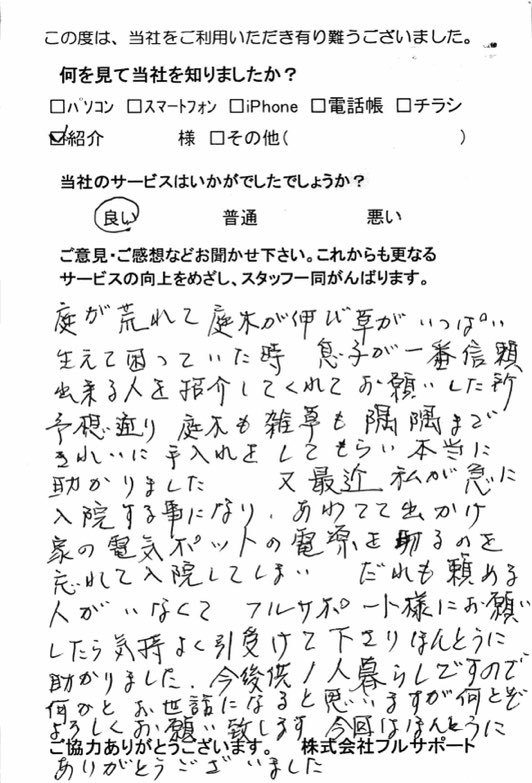 この度は、当社をご利用いただき有り難うございました。
何を見て当社を知りましたか？
□パソコン □スマートフォン □iPhone □電話帳 □チラシ
☑紹介　　　様 □その他(　　　　　　　)
当社のサービスはいかがでしたでしょうか？
良い　　　普通　　　悪い
ご意見・ご感想などお聞かせ下さい。これからも更なる
サービスの向上をめざし、スタッフ一同がんばります。
庭が荒れて庭木が伸び草がいっぱい
生えて困っていた時 息子が一番信頼
出来る人を紹介してくれてお願いした所
予想通り 庭木も雑草も隅隅まで
きれいに手入れをしてもらい本当に
助かりました　又最近 私が急に
入院する事になり、あわてて出かけ
家の電気ポットの電源を切るのを
忘れて入院してしまい　だれも頼める
人がいなくて フルサポート様にお願い
したら気持よく引受けて下さりほんとうに
助かりました。今後供1人暮らしですので
何かとお世話になると思いますが何とぞ
よろしくお願い致します 今回はほんとうに
ご協力ありがとうございます。　株式会社フルサポート
ありがとうございました